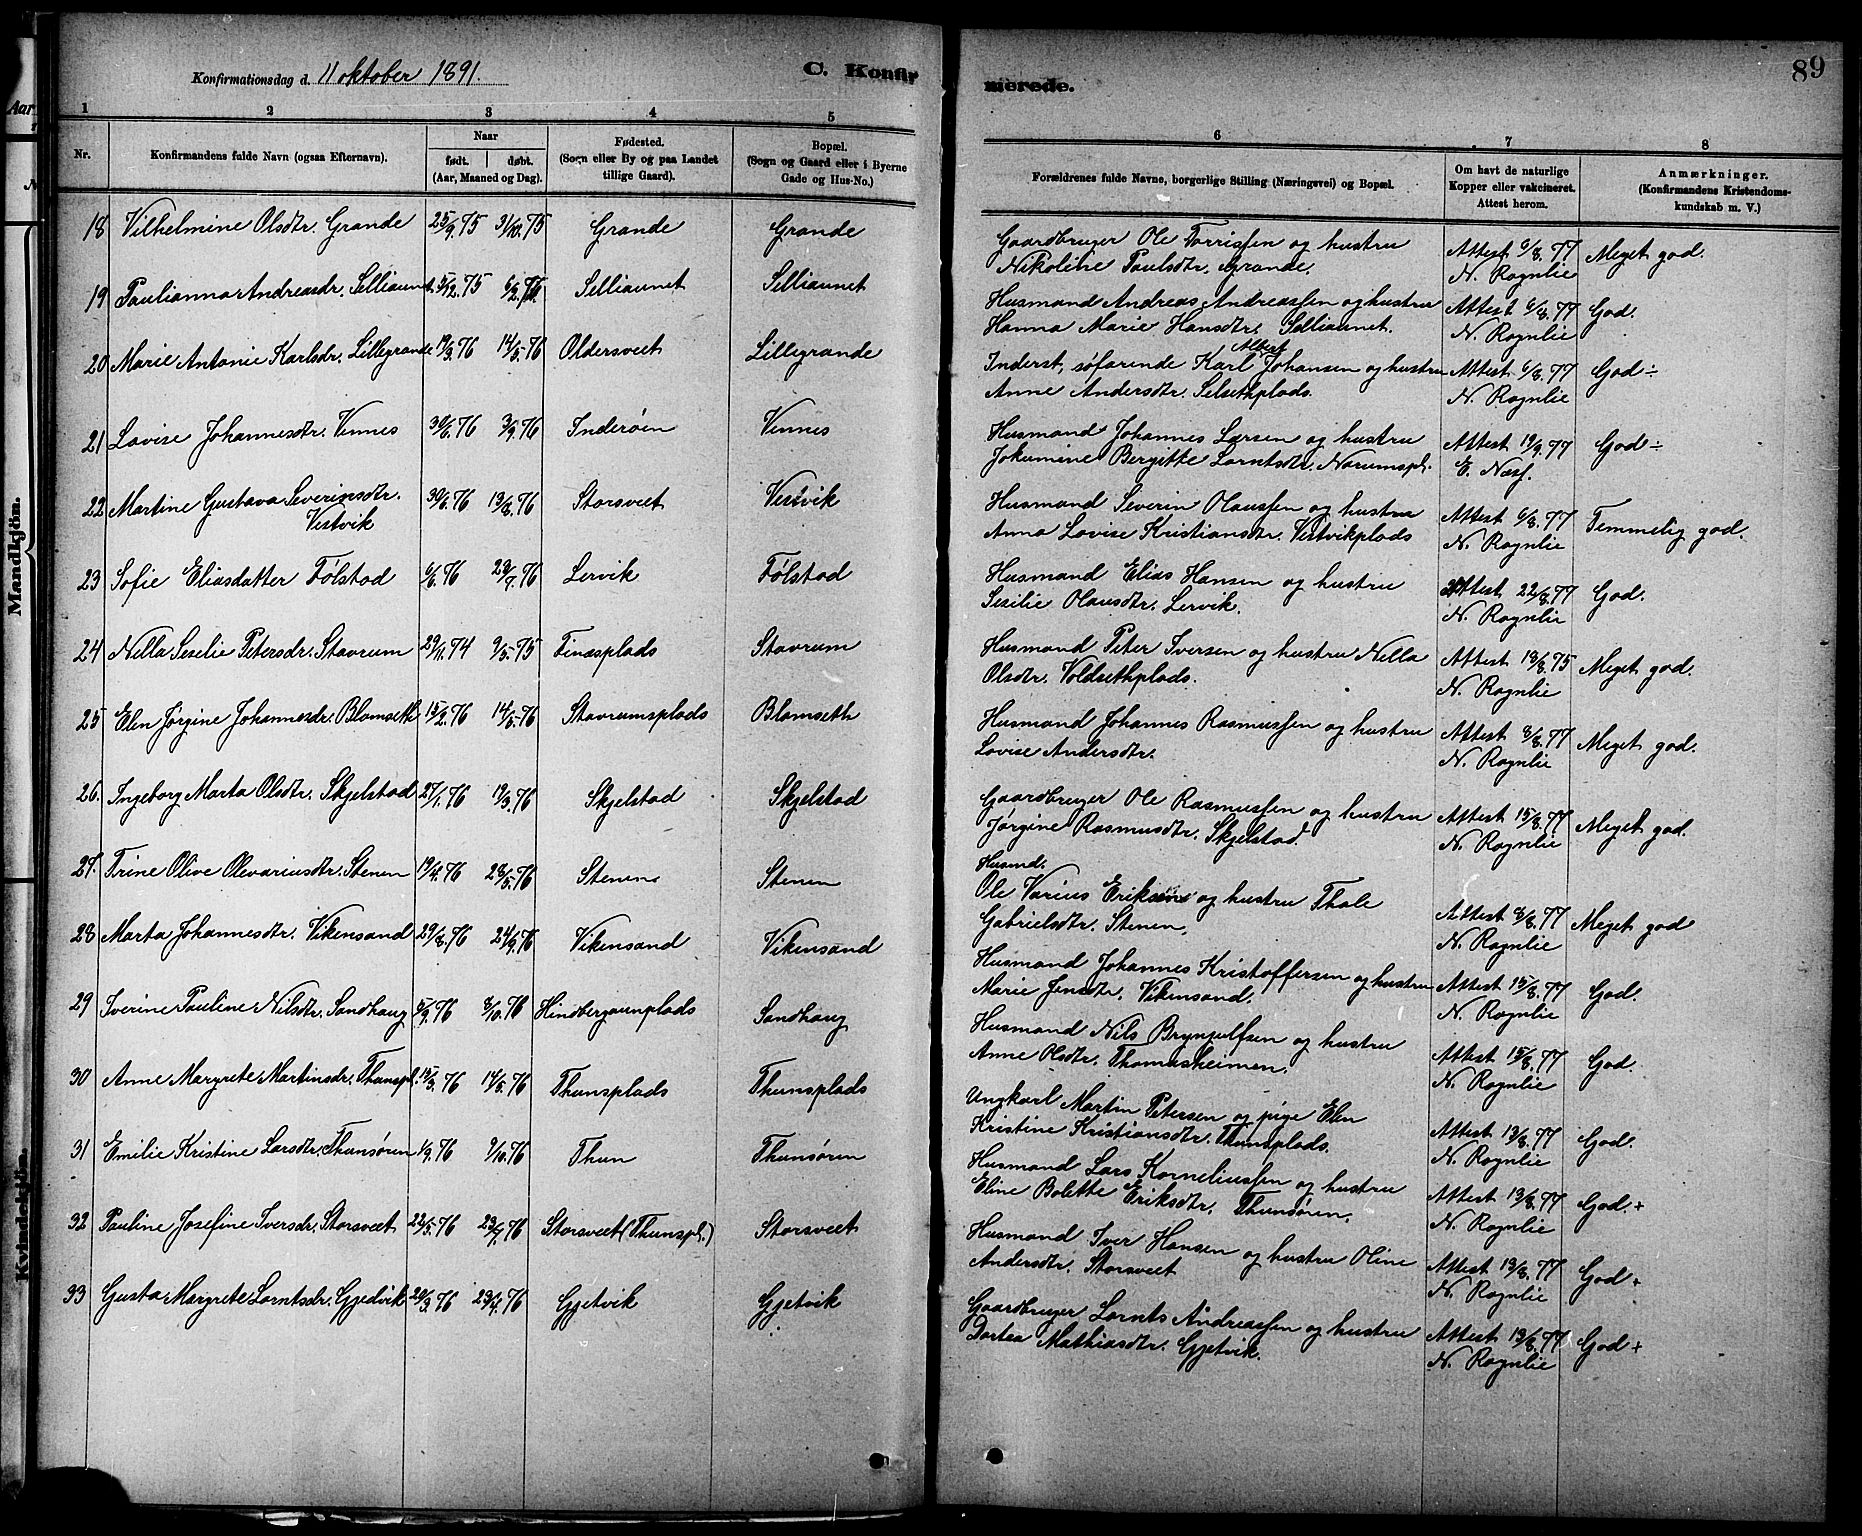 Konfirmationsdag d. 11 oktober 1891.
C. Konfirmerede.
89
1 2 3 4 5 6 7 8
Nr.
Konfirmandens fulde Navn (ogsaa Efternavn).
Naar
født. døbt.
(Aar, Maaned og Dag).
Fødested.
(Sogn eller By og paa Landet
tillige Gaard).
Bopæl.
(Sogn og Gaard eller i Byerne
Gade og Hus-No.)
Forældrenes fulde Navne, borgerlige Stilling (Næringsvei) og Bopæl.
Om havt de naturlige
Kopper eller vakcineret.
Attest herom.
Anmærkninger.
(Konfirmandens Kristendoms-
kundskab m. V.)
Mandkjön.
Kvindekjön.
18 Vilhelmine Olsdtr. Grande 25/9.75 31/10.75 Grande Grande
Gaardbruger Ole Torrissen og hustru
Nikoline Paulsdtr. Grande.
Attest 6/8.77
N. Rognlie
Meget god.
19 Paulianna Andreasdr. Selliaunet 5/12.75 6/2.76 Selliaunet Selliaunet
Husmand Andreas Andreassen og hustru
Hanna Marie Hansdtr. Selliaunet.
Attest 6/8.77
N. Rognlie
God.
20 Marie Antonie Karlsdr. Lillegrande 19/3.76 14/5.76 Oldersveet Lillegrande
Inderst, søfarende Karl Albert Johansen og hustru
Anne Andersdtr. Selsethplads.
Attest 6/8.77
N. Rognlie
God÷
21 Lovise Johannesdtr. Vennes 30/6.76 3/9.76 Inderøen Vennes
Husmand Johannes Larsen og hustru
Jokumine Bergitte Lorntsdtr. Norumspl.
Attest 19/9.77
E. Næss.
God÷
22 Martine Gustava Severinsdtr.
Vestvik
30/6.76 13/8.76 Storsveet Vestvik
Husmand Severin Olaussen og hustru
Anna Lovise Kristiansdtr. Vestvikplads
Attest 6/8.77
N. Rognlie
Temmelig god.
23 Sofie Eliasdatter Følstad 6/6.76 23/7.76 Lervik Følstad
Husmand Elias Hansen og hustru
Sesilie Olausdtr. Lervik.
Attest 22/8.77
N. Rognlie
God.
24 Nilla Seselie Petersdr. Stavrum 29/11.74 9/5.75 Finæsplads Stavrum
Husmand Peter Iversen og hustru Nilla
Olsdtr. Voldsethplads.
Attest 13/8.75
N. Rognlie
Meget god.
25 Elen Jørgine Johannesdr. Blomseth 15/2.76 14/5.76 Stavrumsplads Blomseth
Husmand Johannes Rasmussen og hustru
Lovise Andersdtr.
Attest 8/8.77
N. Rognlie
Meget god.
26. Ingeborg Marta Olsdtr. Skjelstad 27/1.76 19/3.76 Skjelstad Skjelstad
Gaardbruger Ole Rasmussen og hustru
Jørgine Rasmusdtr. Skjelstad.
Attest 15/8.77
N. Rognlie
Meget god.
27. Trine Olive Olevariusdtr. Stenen 19/4.76 28/5.76 Stenen Stenen
Husmd.
Ole Varius Eriksen og hustru Thale
Gabrielsdtr. Stenen.
Attest 8/8.77
N. Rognlie
Meget god
28 Marta Johannesdtr. Vikensand 29/8.76 24/9.76 Vikensand Vikensand
Husmand Johannes Kristoffersen og hustru
Marie Jensdtr. Vikensand.
Attest 15/8.77
N. Rognlie
God.
29 Iverine Pauline Nilsdtr. Sandhaug 5/9.76 8/10.76 Hindbergaunplads Sandhaug
Husmand Nils Brynjulfsen og hustru
Anne Olsdtr. Thomasheimen.
Attest 15/8.77
N. Rognlie
God.
30 Anne Margrete Martinsdr. Thunspl. 15/3.76 14/5.76 Thunsplads Thunsplads
Ungkarl Martin Petersen og pige Elen
Kristine Kristiansdtr. Thunsplads.
Attest 13/8.77
N. Rognlie
God.
31 Emilie Kristine Larsdtr. Thunsøren 1/9.76 9/10.76 Thun Thunsøren
Husmand Lars Korneliussen og hustru
Eline Bolette Eriksdtr. Thunsøren.
Attest 13/8.77
N. Rognlie
God.+
32 Pauline Josefine Iversdr. Storsveet 22/5.76 23/7.76 Storsveet (Thunspl.) Storsveet
Husmand Iver Hansen og hustru Oline
Andersdtr. Storsveet
Attest 13/8.77
N. Rognlie
God+
33 Gusta Margrete Lorntsdr. Gjedvik 20/3.76 23/4.76 Gjetvik Gjetvik
Gaardbruger Lornts Andreassen og hustru
Dortea Mathiasdtr. Gjetvik.
Attest 13/8.77
N. Rognlie
God+